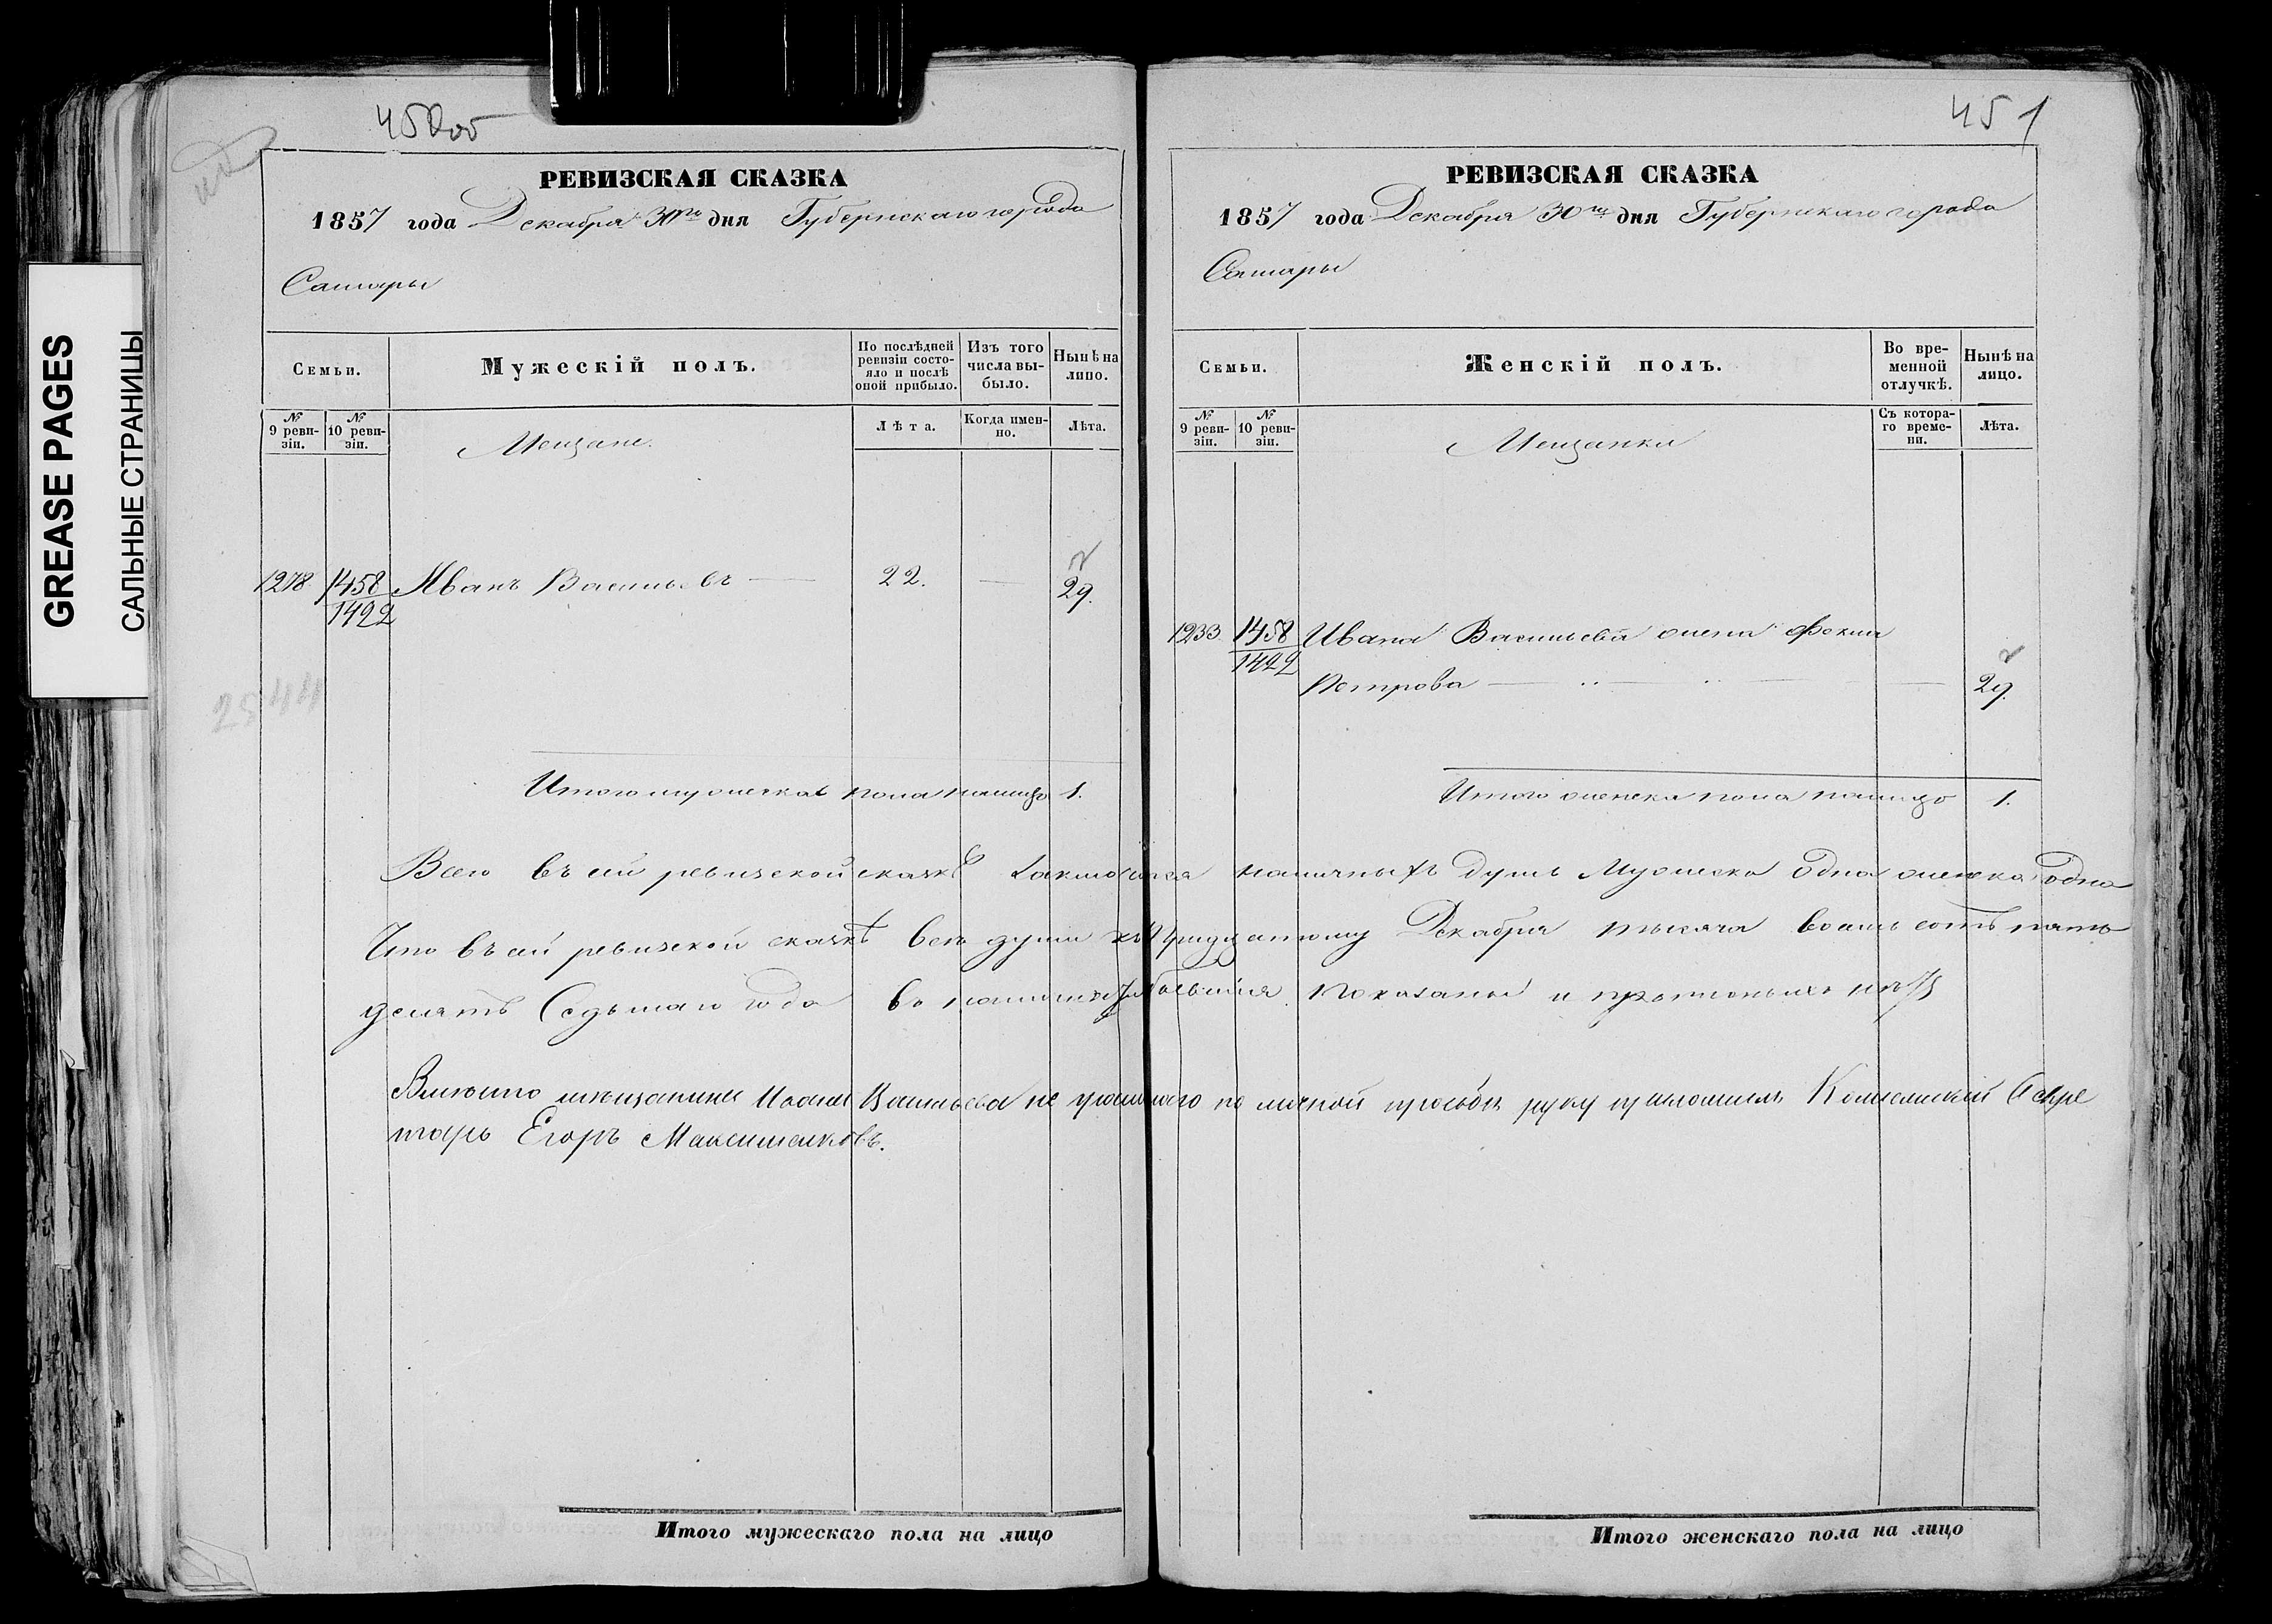 450об
РЕВИЗСКАЯ СКАЗКА
1857 года Декабря 30го дня Губернскаго города
Самары
Семьи.
Мужескій полъ.
По послѣдней ревизіи состояло и послѣ оной прибыло.
Изъ того числа выбыло.
Нынѣ на лицо.
№ 9 ревизіи.
№ 10 ревизіи.
Мещане.
Лѣта.
Когда именно.
Лѣта.
1278
1458
1422
Иванъ Васильевъ
22.
29.
2544
Итого мужеска пола налицо 1.
451
РЕВИЗСКАЯ СКАЗКА
1857 года Декабря 30го дня Губернскаго города
Самары
Семьи.
Женскій полъ.
Во временной отлучкѣ.
Нынѣ на лицо.
№ 9 ревизіи.
№ 10 ревизіи.
Мещанки
Съ котораго времени.
Лѣта.
1233
1458
1422
Ивана Васильева жена Фекла
Петрова
29.
Итого женска пола налицо 1.
Всего въ сей ревизской сказкѣ заключается наличныхъ душъ Мужеска одна женска одна
Что въ сей ревизской сказкѣ всѣ души къ тридцатому Декабря тысяча восемь сотъ пять
десятъ Седьмаго года показаны и
мѣщанина Ивана Васильева не по личной прозьбѣ руку приложилъ Секре
тарь Егоръ Максимениковъ.
Итого мужескаго пола на лицо
Итого женскаго пола на лицо
GREASE PAGES
САЛЬНЫЕ СТРАНИЦЫ